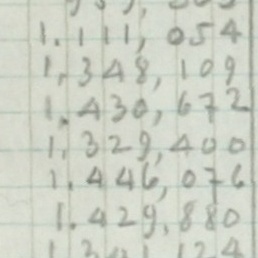 1.111,054
1,348,109
1.430,672
1,329,400
1.446,076
1.429,880